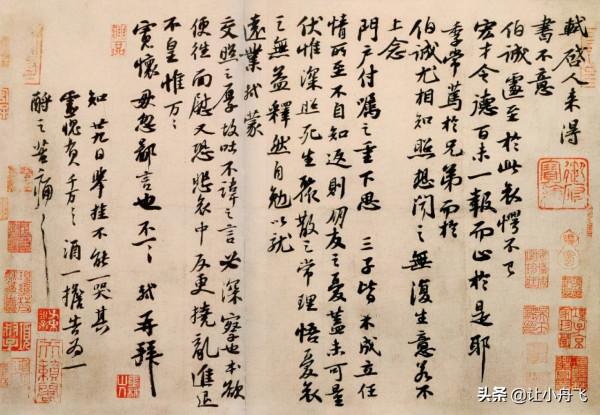 軾啓人來得
書不意
伯誠遽至於此哀愕不已
宏才令德百未一報而止於是耶
季常篤於兄弟而於
伯誠尤相知照想聞之無復生意若不
上念
門戶付囑之重下思三子皆未成立任
情所至不自知返則朋友之憂蓋未可量
伏惟深照死生聚散之常理悟憂哀
之無益釋然自勉以就
遠業軾蒙
交照之厚故吐不諱之言必深察也本欲
便往面慰又恐悲哀中反更撓亂進退
不皇惟萬萬
寬懷毋忽鄙言也不一一軾再拜
知廿九日舉掛不能一哭其
靈愧負千萬千萬酒一擔告為一
酹之苦痛苦痛
头条 @让小舟飞